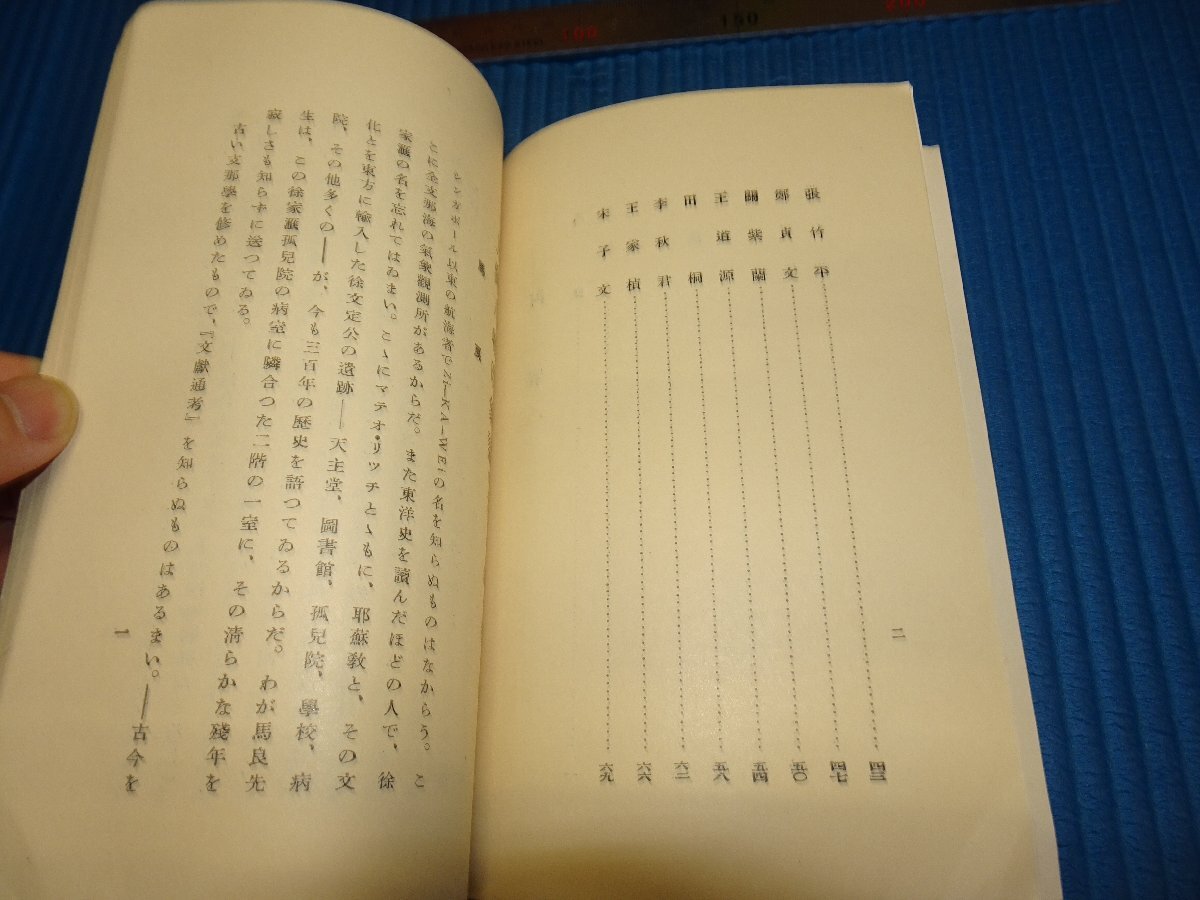 100 150 200
二
張竹平……四三
鄭貞文……四七
關紫蘭……五〇
王道源……五四
田桐……五八
李秋君……六二
王家楨……六六
宋子文……六九
馬良
シンガポール以東の航海者でZI―KA―WEIの名を知らぬものはなからう。こ
こに全支那海の氣象觀測所があるからだ。また東洋史を讀んだほどの人で、徐
家滙の名を忘れてはゐまい。こゝにマテオ・リッチとゝもに、耶蘇敎と、その文
化とを東方に輸入した徐文定公の遺跡――天主堂、圖書館、孤兒院、學校、病
院、その他多くの――が、今も三百年の歷史を語つてゐるからだ。わが馬良先
生は、この徐家滙孤兒院の病室に隣合つた二階の一室に、その清らかな殘年を
寂しさも知らずに送つてゐる。
古い支那學を修めたもので、『文獻通考』を知らぬものはあるまい。――古今を
一